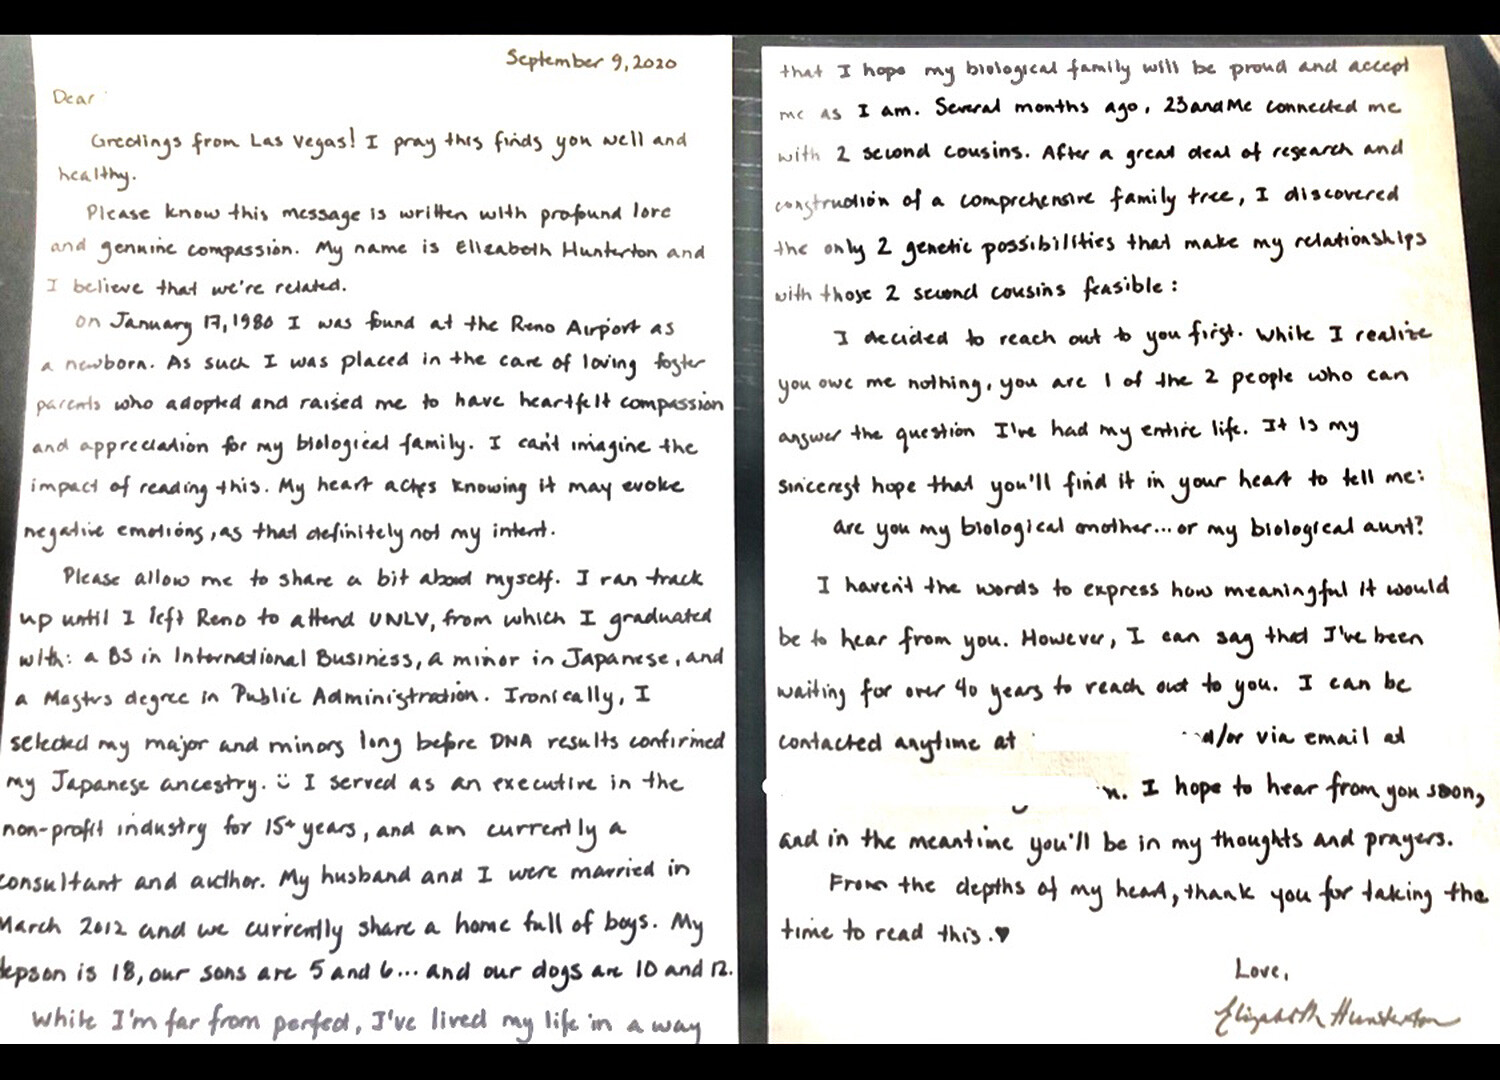 September 9, 2020
Dear
Greetings from Las Vegas! I pray this finds you well and
healthy.
Please know this message is written with profound love
and genuine compassion. My name is Elizabeth Hunterton and
I believe that we're related.
On January 17, 1980 I was found at the Reno Airport as
a newborn. As such I was placed in the care of loving foster
parents who adopted and raised me to have heartfelt compassion
and appreciation for my biological family. I can't imagine the
impact of reading this. My heart aches knowing it may evoke
negative emotions, as that definitely not my intent.
Please allow me to share a bit about myself. I ran track
up until I left Reno to attend UNLV, from which I graduated
with: a BS in International Business, a minor in Japanese, and
a Masters degree in Public Administration. Ironically, I
selected my major and minors long before DNA results confirmed
my Japanese ancestry. I served as an executive in the
non-profit industry for 15+ years, and am currently a
consultant and author. My husband and I were married in
March 2012 and we currently share a home full of boys. My
stepson is 18, our sons are 5 and 6... and our dogs are 10 and 12.
While I'm far from perfect, I've lived my life in a way
that I hope my biological family will be proud and accept
me as I am. Several months ago, 23andMe connected me
with 2 second cousins. After a great deal of research and
construction of a comprehensive family tree, I discovered
the only 2 genetic possibilities that make my relationships
with those 2 second cousins feasible:
I decided to reach out to you first. While I realize
you owe me nothing, you are 1 of the 2 people who can
answer the question I've had my entire life. It is my
sincerest hope that you'll find it in your heart to tell me:
are you my biological mother... or my biological aunt?
I haven't the words to express how meaningful it would
be to hear from you. However, I can say that I've been
waiting for over 40 years to reach out to you. I can be
contacted anytime at d/or via email at
n. I hope to hear from you soon,
and in the meantime you'll be in my thoughts and prayers.
From the depths of my heart, thank you for taking the
time to read this. ♥
Love,
Elizabeth Hunterton